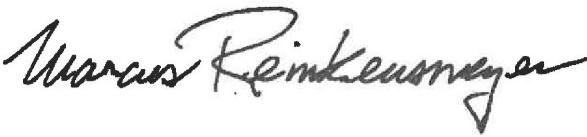 Marcus Reinkensmeyer